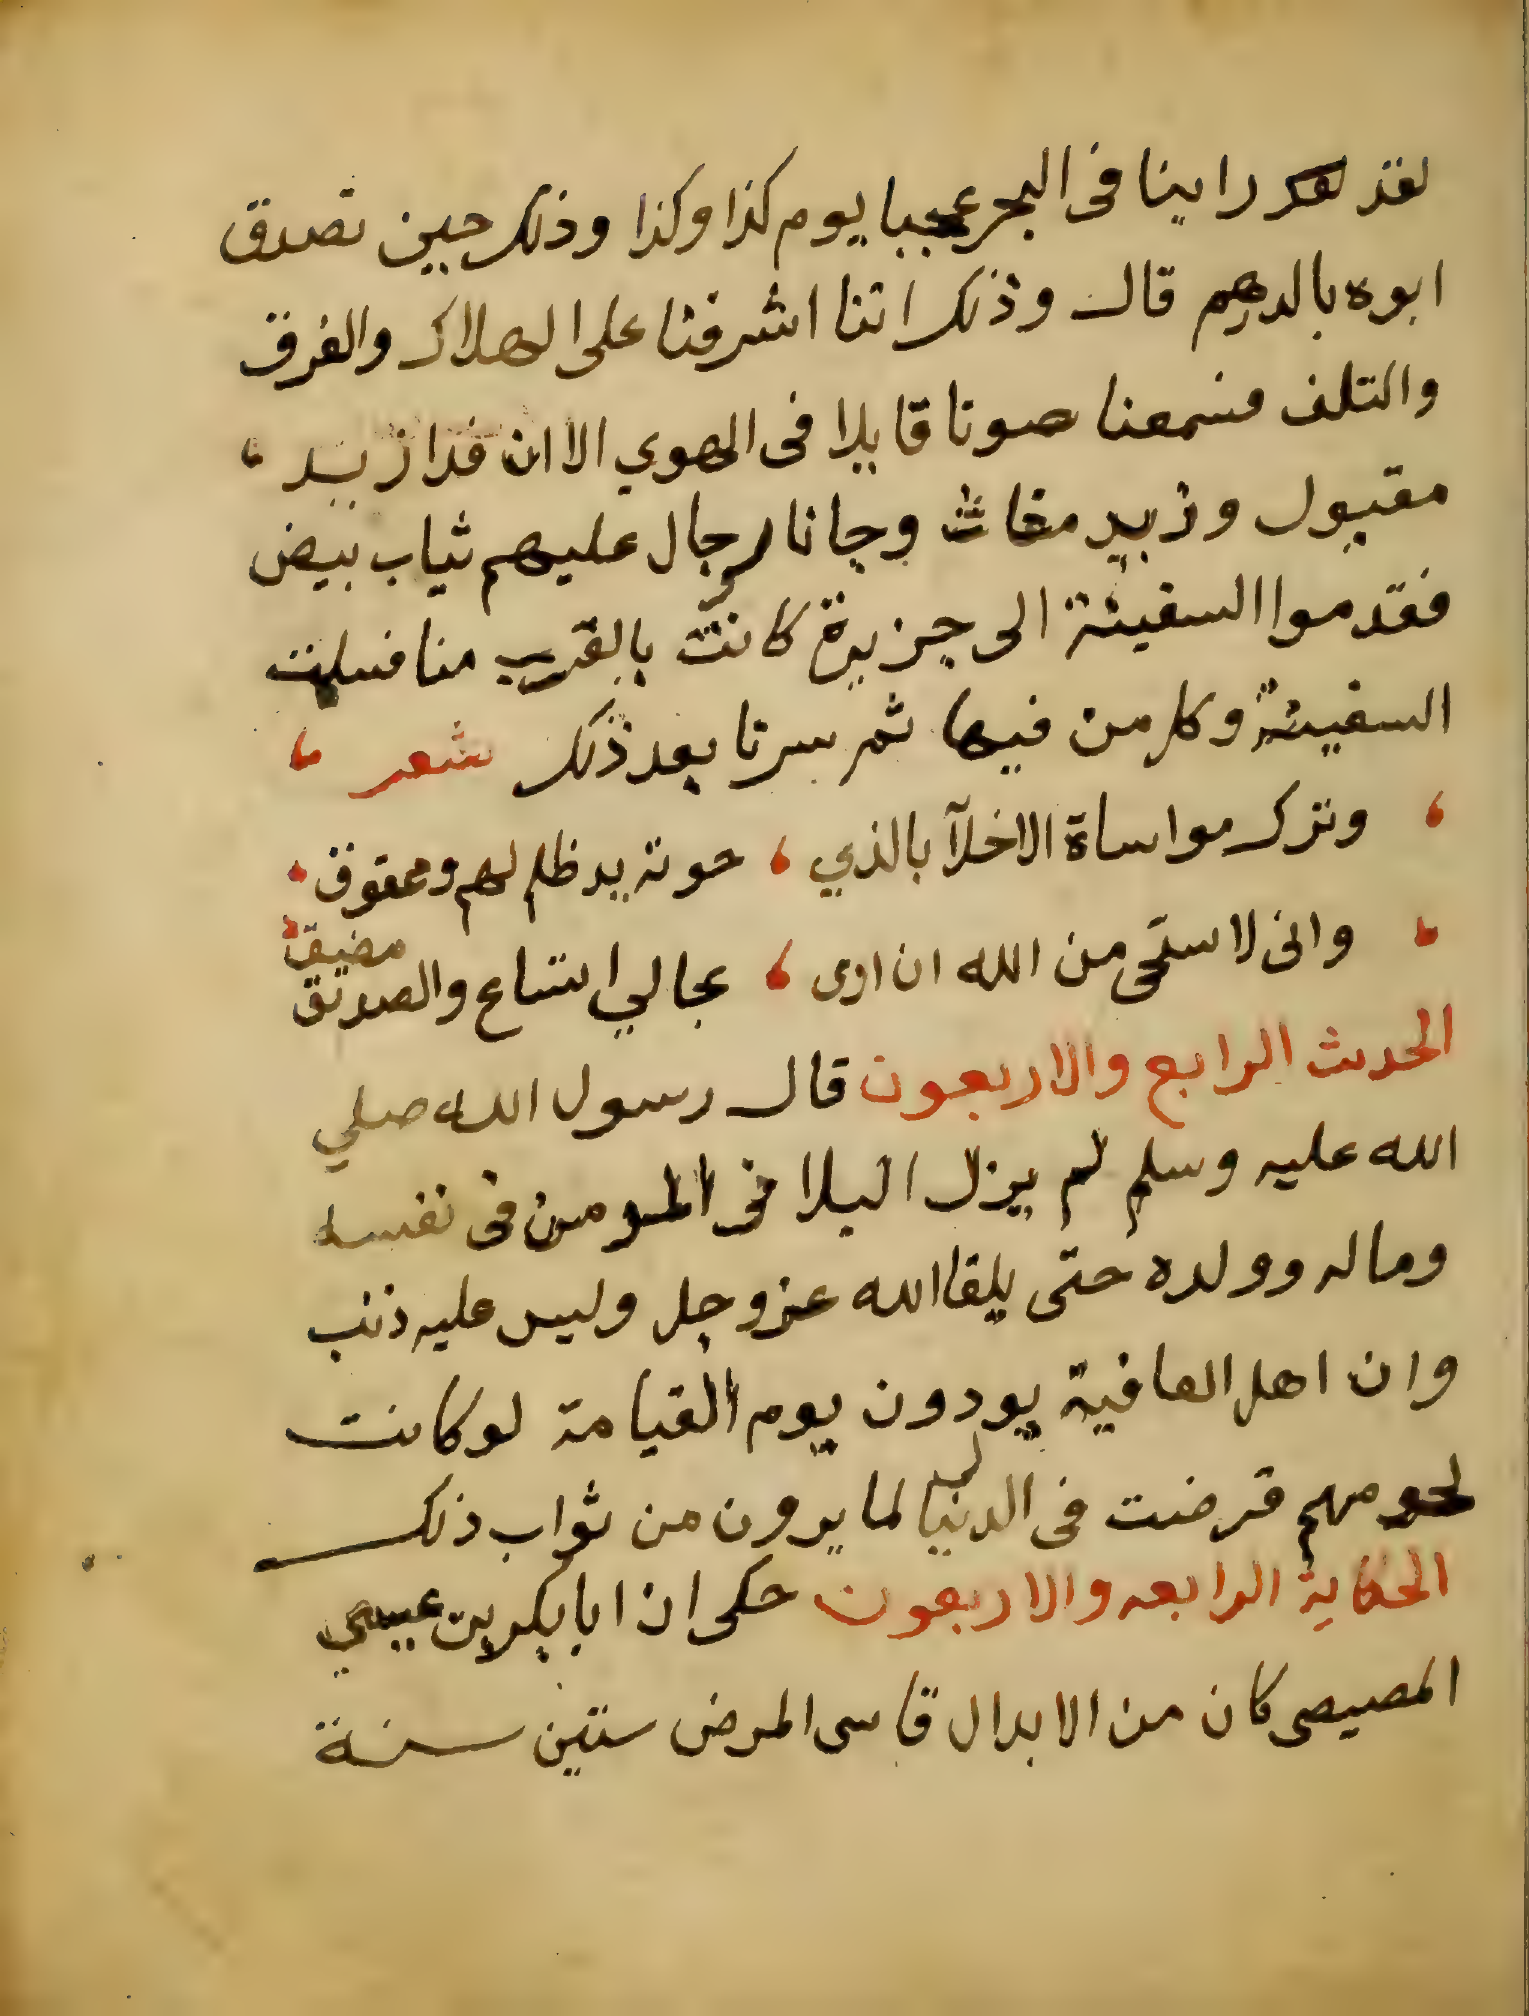 لقد راينا فى البحر عجبا يوم كذا وكذا وذلك حين تصدق
ابوه بالدرهم قال وذلك اننا اشرفنا على الهلاك والغرق
والتلف فسمعنا صوتا قايلا فى الهوي الا ان فدا زيد
مقبول وزيد مغاث وجانا رجال عليهم ثياب بيض
فقدموا السفينة الى جزيرة كانت بالقرب منا فسلمت
السفينة وكل من فيها ثم سرنا بعد ذلك شعر
وتترك مواساة الاخلآ بالذي ، حوته يد ظلم لهم وعقوق
وانى لاستحى من الله ان ارى ، مجالي اتساع والصديق
مضيق
الحديث الرابع والاربعون قال رسول الله صلي
الله عليه وسلم لم يزل البلا فى المومن فى نفسه
وماله وولده حتى يلقا الله عز وجل وليس عليه ذنب
وان اهل العافية يودون يوم القيامة لو كانت
لحومهم قرضت فى الدنيا لما يرون من ثواب ذلك
الحكاية الرابعه والاربعون حكى ان ابا بكر بن عيسي
المصيصى كان من الابدال قاسى المرض ستين سنة